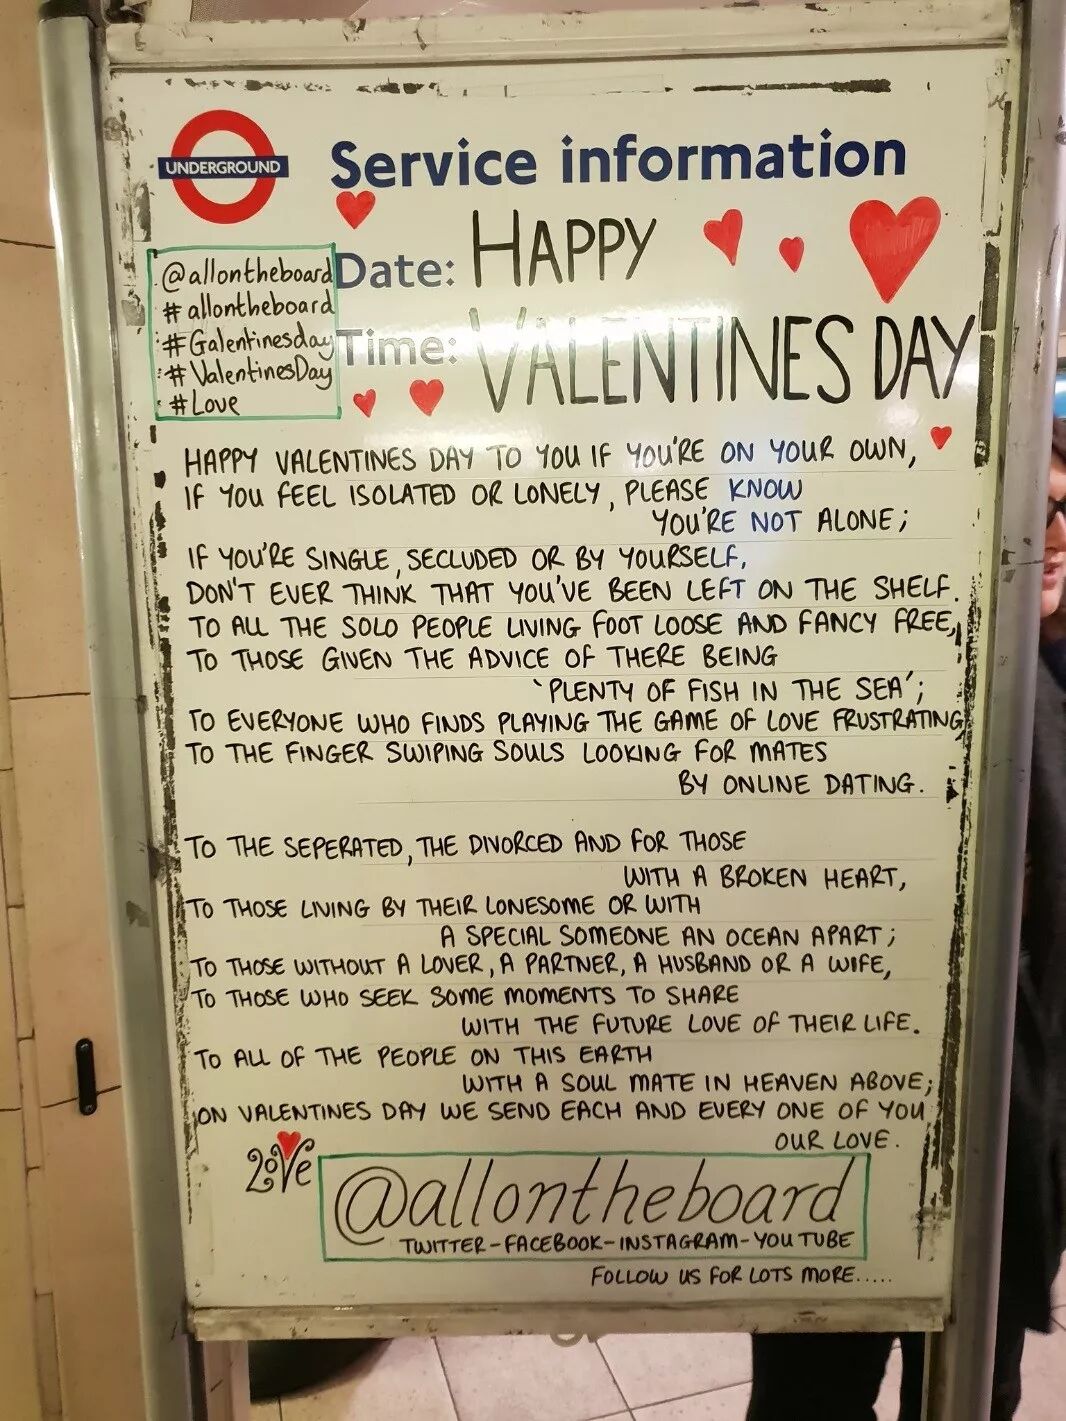 UNDERGROUND
Service information
Date: HAPPY
Time: VALENTINES DAY
@allontheboard
#allontheboard
#Galentinesday
#ValentinesDay
#Love
HAPPY VALENTINES DAY TO YOU IF YOU'RE ON YOUR OWN,
IF YOU FEEL ISOLATED OR LONELY, PLEASE KNOW
YOU'RE NOT ALONE;
IF YOU'RE SINGLE, SECLUDED OR BY YOURSELF,
DON'T EVER THINK THAT YOU'VE BEEN LEFT ON THE SHELF.
TO ALL THE SOLO PEOPLE LIVING FOOT LOOSE AND FANCY FREE,
TO THOSE GIVEN THE ADVICE OF THERE BEING
'PLENTY OF FISH IN THE SEA';
TO EVERYONE WHO FINDS PLAYING THE GAME OF LOVE FRUSTRATING,
TO THE FINGER SWIPING SOULS LOOKING FOR MATES
BY ONLINE DATING.
TO THE SEPERATED, THE DIVORCED AND FOR THOSE
WITH A BROKEN HEART,
TO THOSE LIVING BY THEIR LONESOME OR WITH
A SPECIAL SOMEONE AN OCEAN APART;
TO THOSE WITHOUT A LOVER, A PARTNER, A HUSBAND OR A WIFE,
TO THOSE WHO SEEK SOME MOMENTS TO SHARE
WITH THE FUTURE LOVE OF THEIR LIFE.
TO ALL OF THE PEOPLE ON THIS EARTH
WITH A SOUL MATE IN HEAVEN ABOVE;
ON VALENTINES DAY WE SEND EACH AND EVERY ONE OF YOU
OUR LOVE.
LOVE
@allontheboard
TWITTER-FACEBOOK-INSTAGRAM-YOUTUBE
FOLLOW US FOR LOTS MORE.....